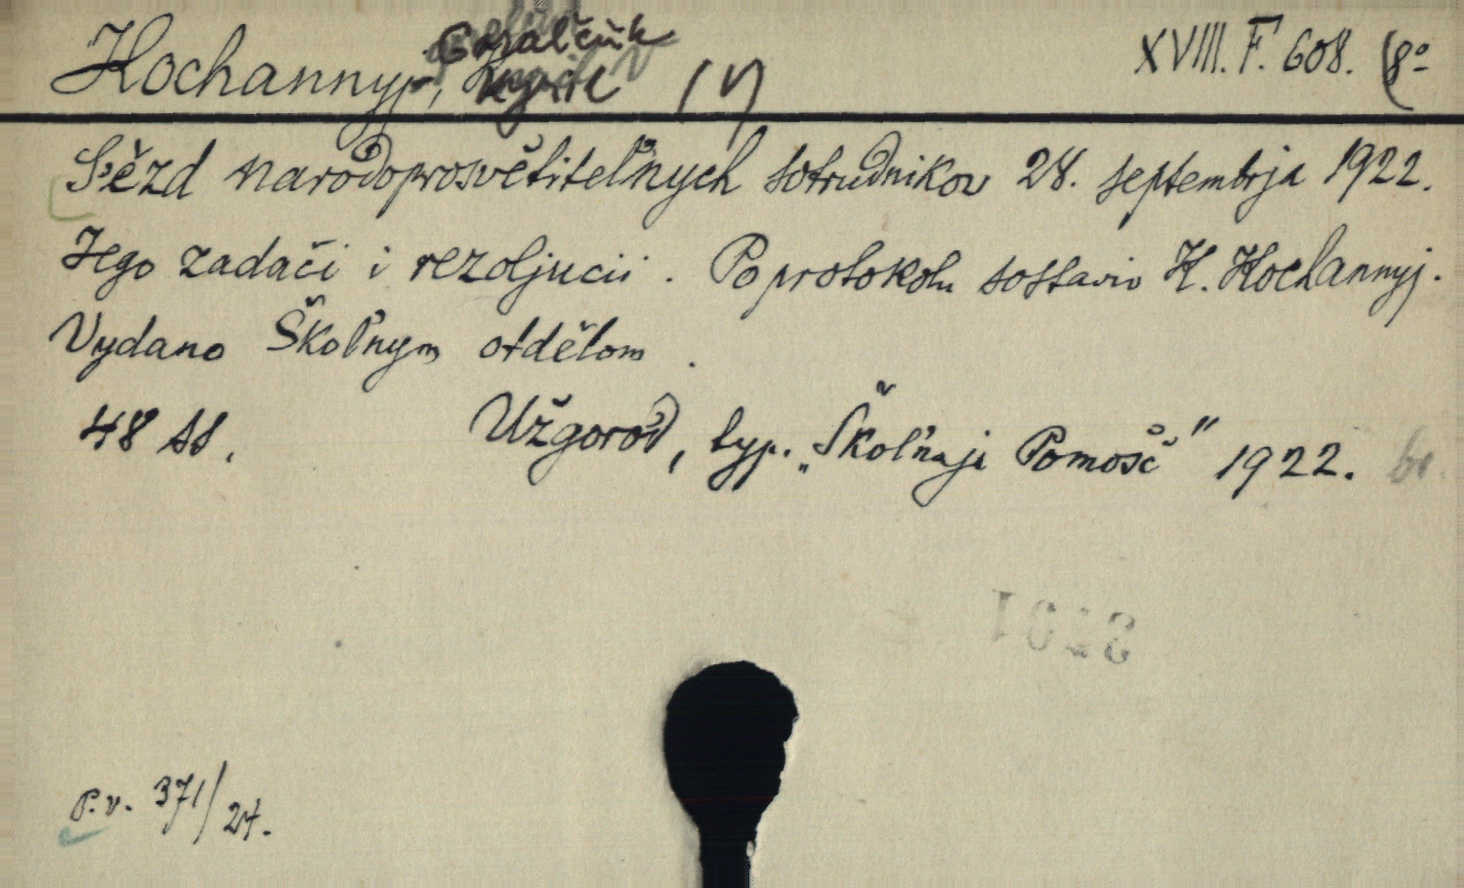 Kochannyj, Kyril XVIII. F. 608. (8°
Sʺězd narodoprosvětiteľnych sotrudnikov 28. septembrja 1922.
Jego zadači i rezoljucii. Po protokolu sostaviv K. Kochannyj.
Vydano Školʹnym otdělom.
48 ss. Užgorod, typ. „Školʹnaja Pomošč" 1922. br.
3201
P.v. 371/24.